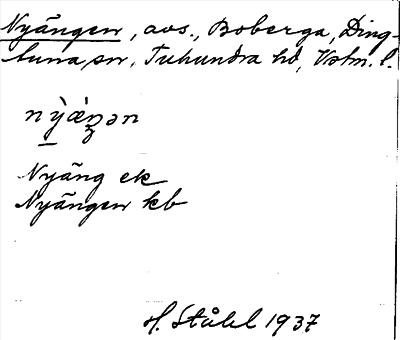 Nyängen, avs., Boberga, Ding-
tuna sn, Tuhundra hd, Vstm. l.
nỳǽŋən
Nyäng ek
Nyängen kb
H. Ståhl 1937